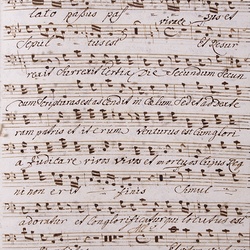 lato passus pas sus et
vivace
Sepul tus est et Resur
rexit surrexit tertia Die Secundum Scrip
dum scripturas et ascendit in Coelum Sedet ad Dexte
ram patris et iterum venturus est cum glori
a judicare vivos vivos et mortuos cujus Reg
ni non erit finis Simul
adoratur et Conglorificatur qui locutus est